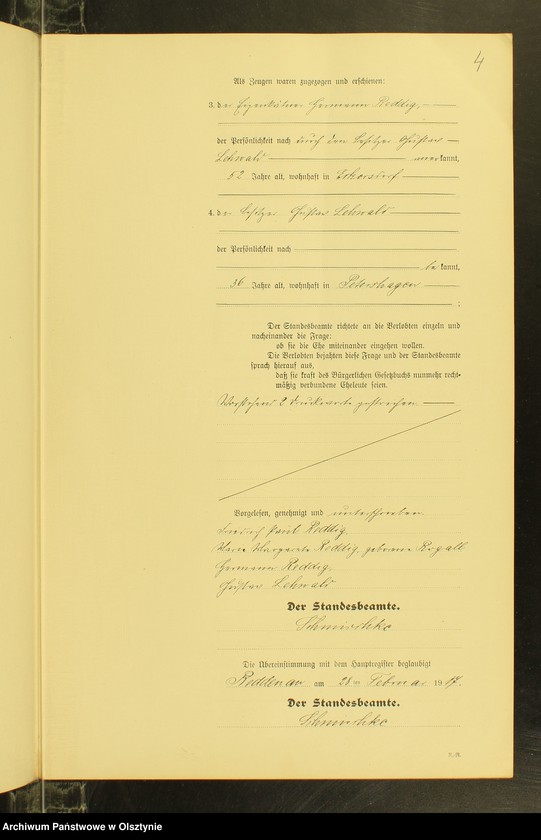 4
Als Zeugen waren zugezogen und erschienen:
3. der Eigenkätner Hermann Reddig,
der Persönlichkeit nach durch den Besitzer Gustav
Lehwald anerkannt,
52 Jahre alt, wohnhaft in
4. der Besitzer Gustav Lehwald
der Persönlichkeit nach
bekannt,
36 Jahre alt, wohnhaft in Petershagen
;
Der Standesbeamte richtete an die Verlobten einzeln und
nacheinander die Frage:
ob sie die Ehe miteinander eingehen wollen.
Die Verlobten bejahten diese Frage und der Standesbeamte
sprach hierauf aus,
daß sie kraft des Bürgerlichen Gesetzbuchs nunmehr recht-
mäßig verbundene Eheleute seien.
Vorstehend 2 Druckworte gestrichen.
Vorgelesen, genehmigt und unterschrieben
Friedrich Paul Reddig.
Margarete Reddig, geborene
Hermann Reddig.
Gustav Lehwald
Der Standesbeamte.
Die Übereinstimmung mit dem Hauptregister beglaubigt
Reddenau am 28ten Februar 1917.
Der Standesbeamte.
Archiwum Państwowe w Olsztynie